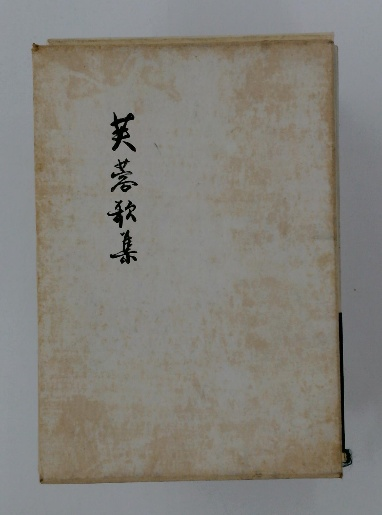 芙蓉歌集